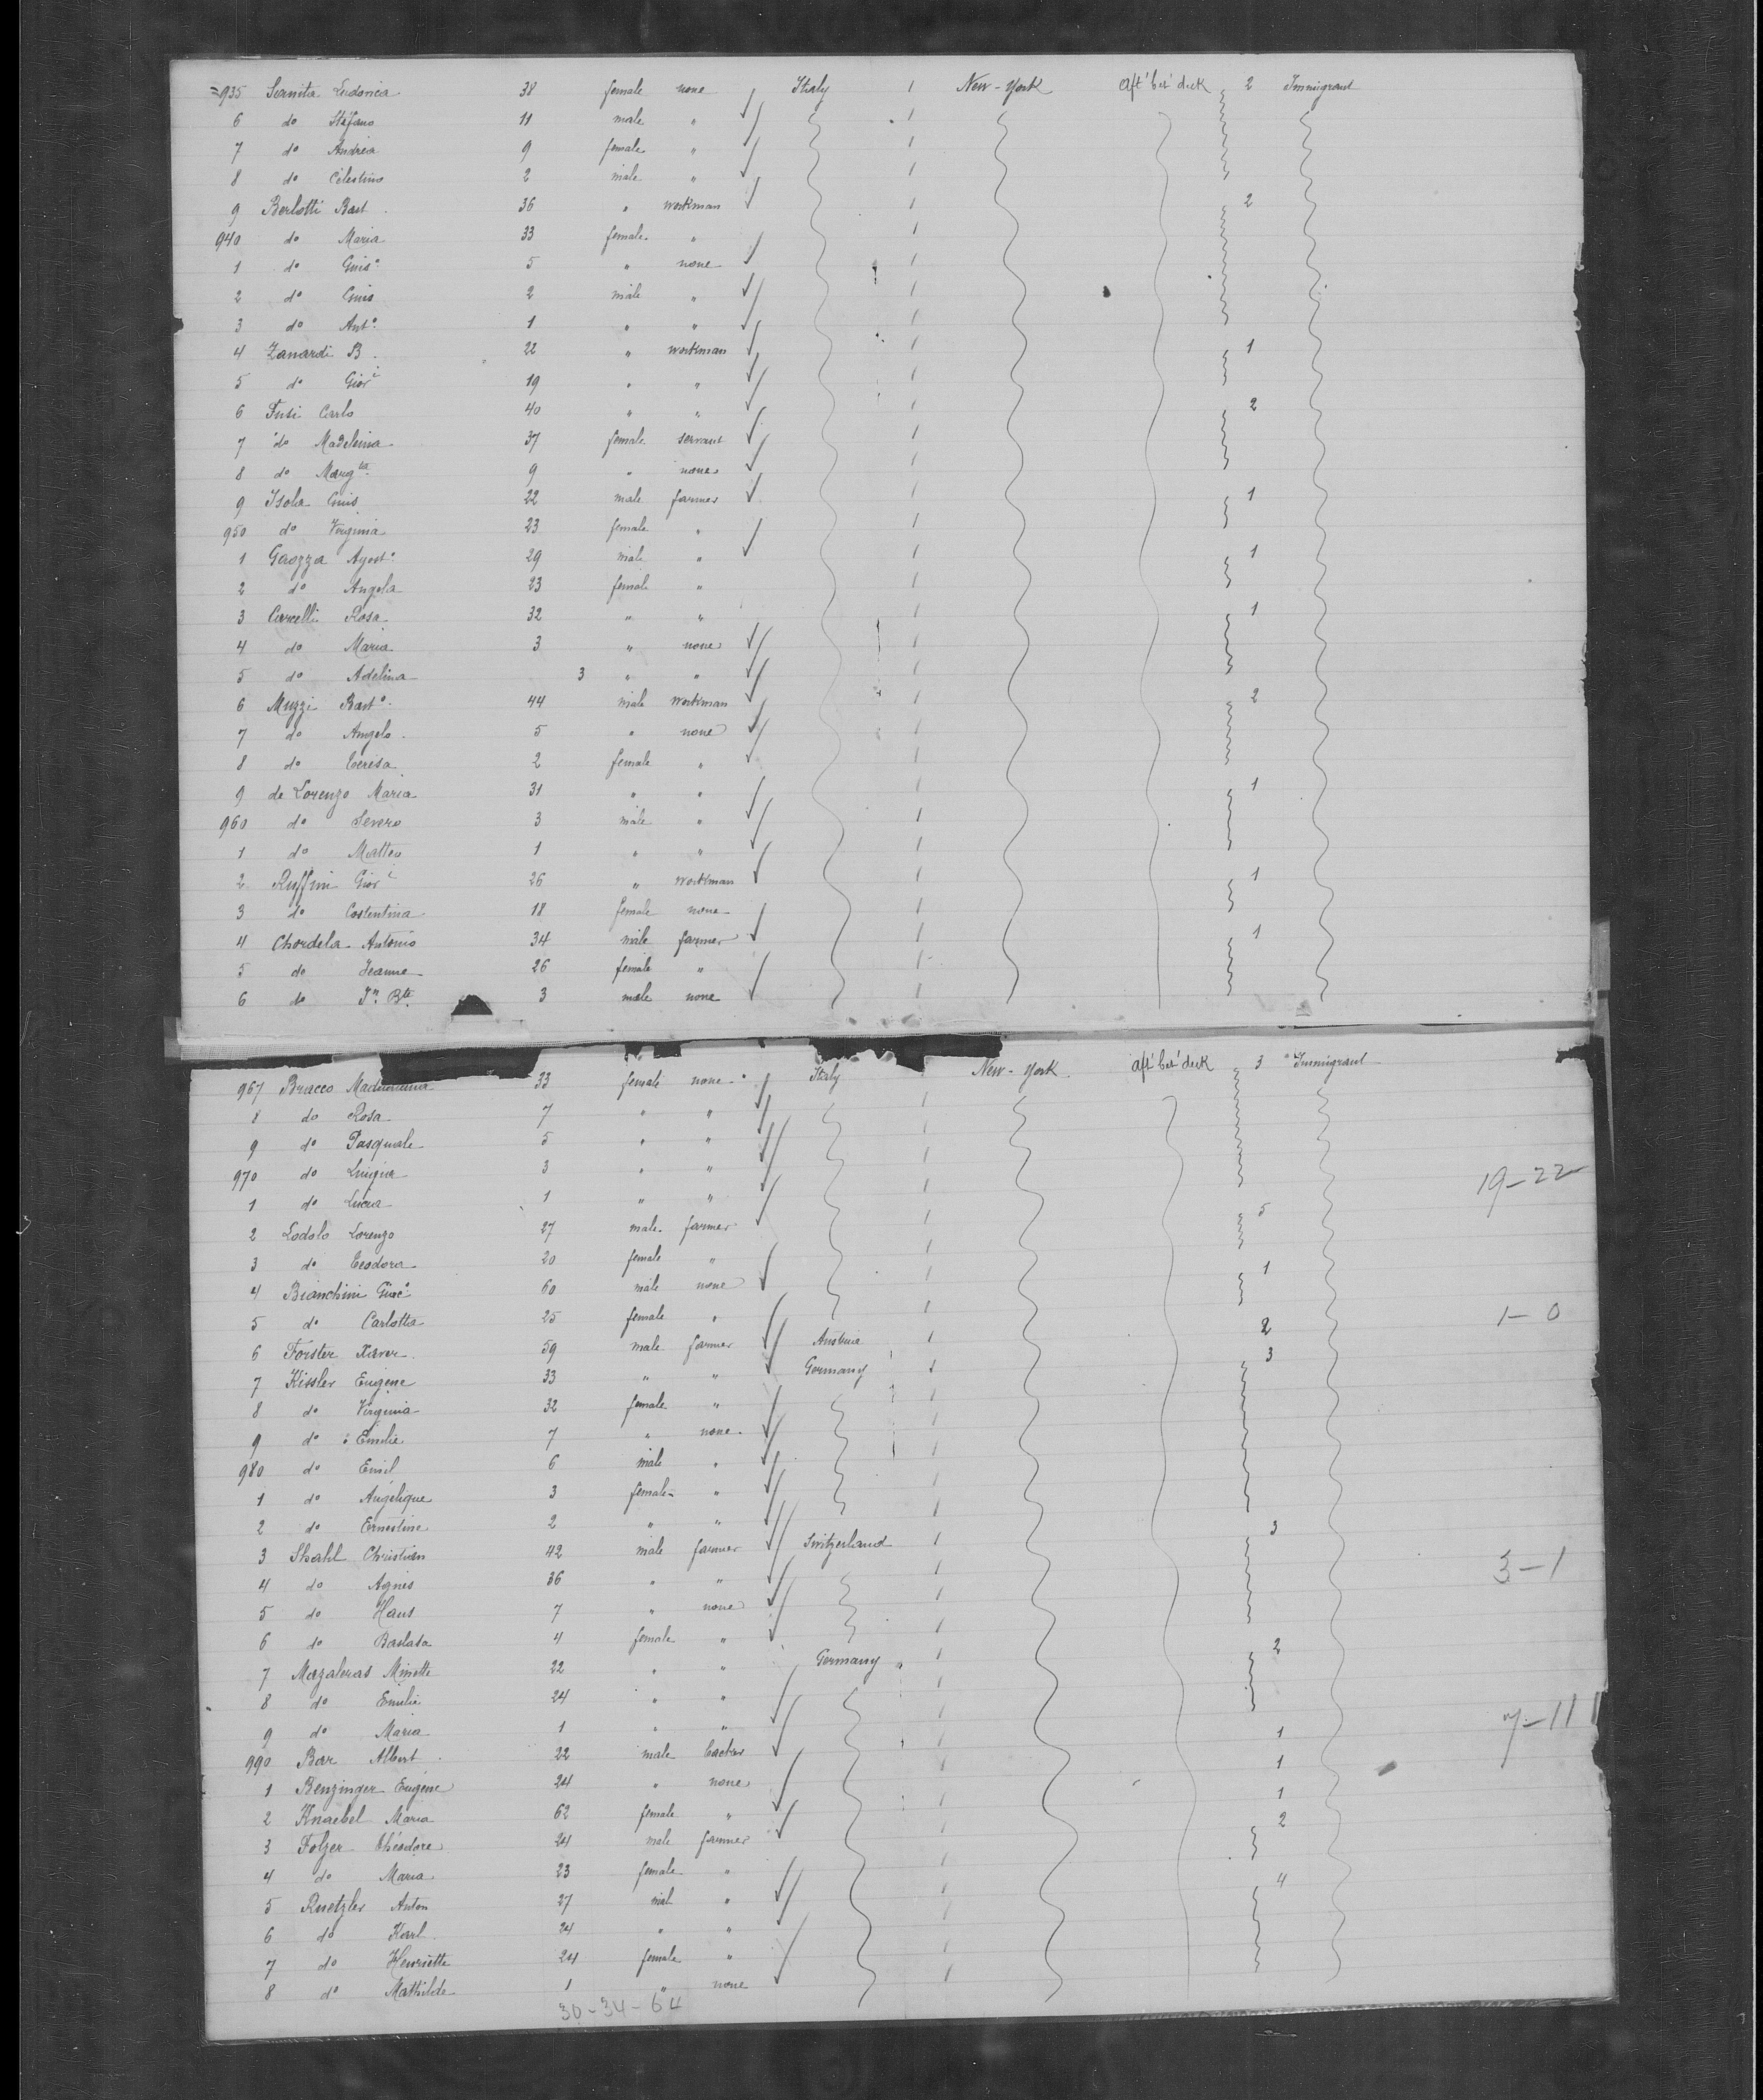 935 Sernita Ludovica 38 female none Italy 1 New-York Aft' bet' deck 2 Immigrant
6 do Stefano 11 male "
7 do Andrea 9 female "
8 do Celestino 2 male "
9 Berlotti Bart. 36 " workman 2
940 do Maria 33 female "
1 do Guis° 5 " none
2 do Guis 2 male "
3 do Ant° 1 " "
4 Zanardi B. 22 " workman 1
5 do Giorⁱ 19 " "
6 Fusi Carlo 40 " " 2
7 do Madelina 37 female servant
8 do Margta 9 " none
9 Isola Guis 22 male farmer 1
950 do Virginia 23 female "
1 Gaozza Agost° 29 male " 1
2 do Angela 23 female "
3 Carcelli Rosa 32 " " 1
4 do Maria 3 " none
5 do Adelina 3 " "
6 Muzzi Bart° 44 male workman 2
7 do Angelo 5 " none
8 do Teresa 2 female "
9 de Lorenzo Maria 31 " " 1
960 do Severo 3 male "
1 do Matteo 1 " "
2 Ruffini Giorⁱ 26 " workman 1
3 do Costentina 18 female none
4 Chordela Antonio 34 male farmer 1
5 do Jeanne 26 female "
6 do Jn Bte 3 male none
967 Bracco 33 female none Italy New-York Aft' bet' deck 3 Immigrant
8 do Rosa 7 " "
9 do Pasquale 5 " "
970 do Luigia 3 " " 19-22
1 do Lucia 1 " "
2 Lodolo Lorenzo 27 male farmer 5
3 do Teodora 20 female "
4 Bianchini Giac° 60 male none 1
5 do Carlotta 25 female " 1-0
6 Forster Xaver 59 male farmer Austria 1 2
7 Kissler Eugène 33 " " Germany 1 3
8 do Virginia 32 female "
9 do Emilie 7 " none
980 do Emil 6 male "
1 do Angélique 3 female "
2 do Ernestine 2 " "
3 Stahl Christian 42 male farmer Switzerland 3
4 do Agnes 36 " " 3-1
5 do Hans 7 " none
6 do Barbara 4 female "
7 Mazaleras Minette 22 " " Germany 2
8 do Emilie 24 " "
9 do Maria 1 " " 7-11
990 Bar Albert 22 male backer 1
1 Benzinger Eugène 24 " none 1
2 Knaebel Maria 62 female " 1
3 Folzer Théodore 24 male farmer 2
4 do Maria 23 female "
5 Ruetzler Anton 27 male " 4
6 do Karl 24 " "
7 do Henriette 24 female "
8 do Mathilde 1 " none
30-34-64